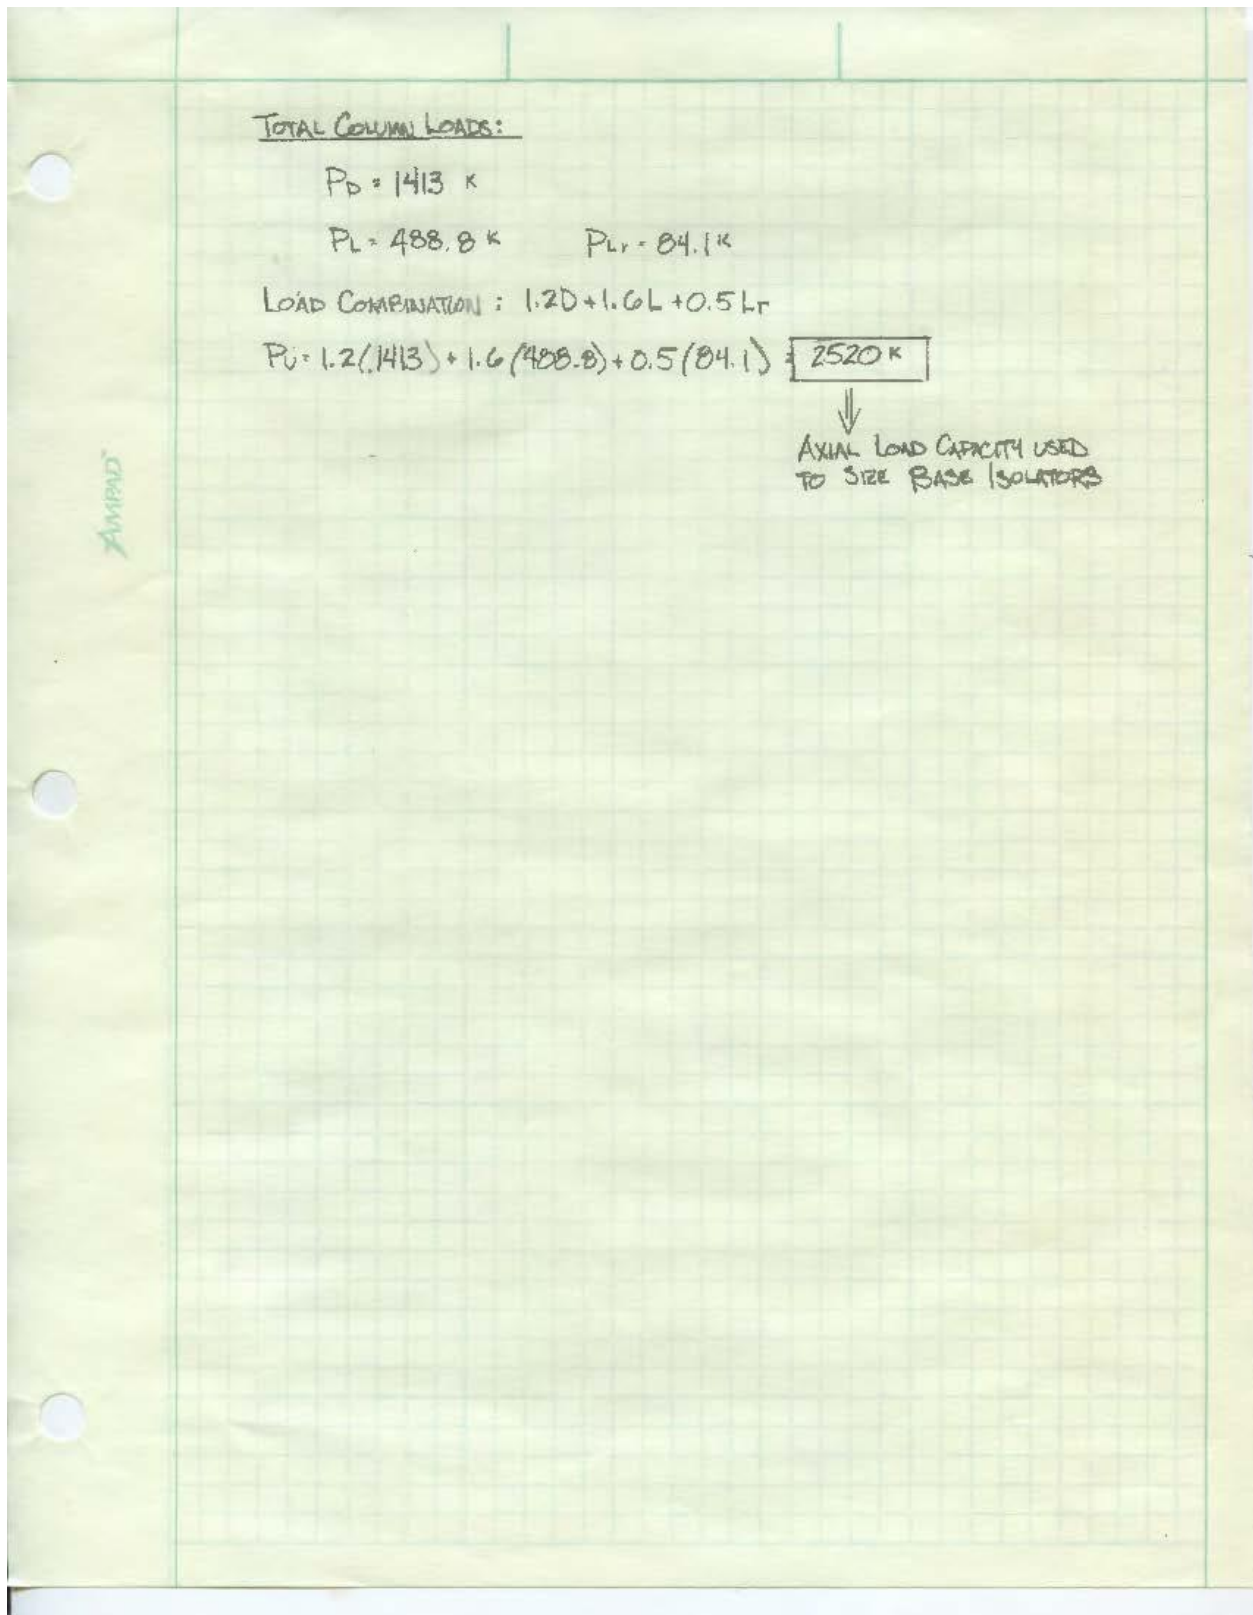 TOTAL COLUMN LOADS:
PD = 1413 K
PL = 488.8 K PLr = 84.1 K
LOAD COMBINATION : 1.2D + 1.6L + 0.5Lr
PU = 1.2(1413) + 1.6(488.8) + 0.5(84.1) = 2520 K
AXIAL LOAD CAPACITY USED
TO SIZE BASE ISOLATORS
AMPAD™